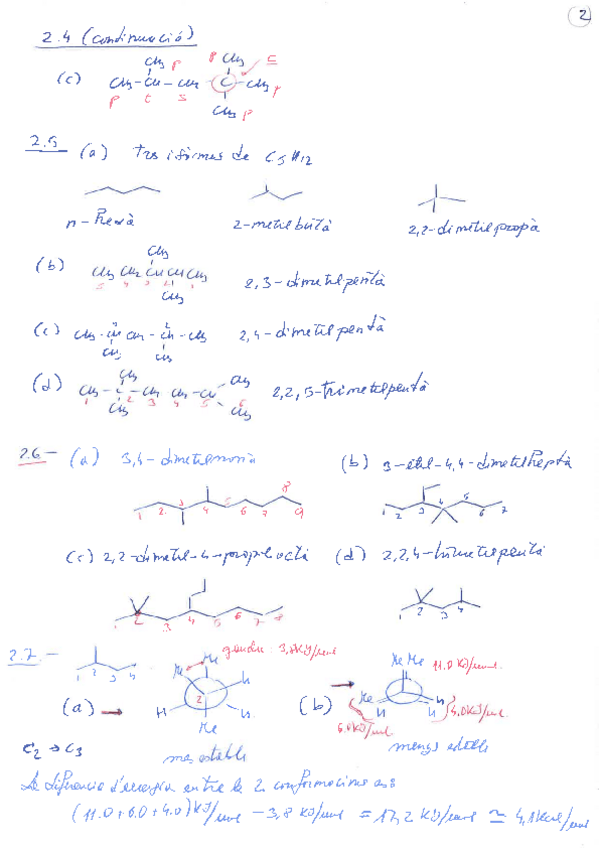 2
2.4 (continuació)
(c) CH3-CH-CH2-C-CH3
CH3 CH3 CH3
p t s p p p c
2.5 (a) Tres isòmers de C5H12
n-Pentà 2-metilbutà 2,2-dimetilpropà
(b) CH3 CH2 CH CH CH3 2,3-dimetilpentà
CH3 CH3
(c) CH3-CH CH2-CH-CH3 2,4-dimetilpentà
CH3 CH3
(d) CH3-C-CH2 CH2 CH 2,2,5-trimetilpentà
CH3 CH3 CH3 CH3
1 2 3 4 5 6
2.6- (a) 3,4-dimetilnonà (b) 3-etil-4,4-dimetilheptà
1 2 3 4 5 6 7 8 9 1 2 3 4 5 6 7
(c) 2,2-dimetil-4-propiloctà (d) 2,2,4-trimetilpentà
1 2 3 4 5 6 7 8 1 2 3 4 5
2.7.- gauche: 3,8 KJ/mol
1 2 3 4 Me Me H H H Me 2
Me Me 11.0 KJ/mol
(a) (b) Me H H 6.0 KJ/mol 4.0 KJ/mol
C2 → C3 mes estable menys estable
La diferencia d'energia entre les 2 conformacions es:
(11.0 + 6.0 + 4.0) KJ/mol - 3,8 KJ/mol = 17,2 KJ/mol ≃ 4,1 Kcal/mol